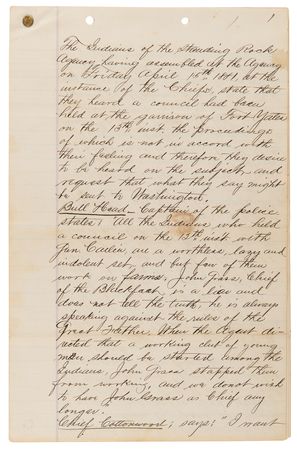 1
The Indians of the Standing Rock
Agency having assembled at the Agency
on Friday April 15th 1881, at the
instance of the Chiefs, state that
they heard a council had been
held at the garrison of Fort Yates
on the 13th inst. the proceedings
of which is not in accord with
their feeling and therefore they desire
to be heard on the subject, and
request that what they say might
be sent to Washington.
Bull Head - Captain of the police
states: All the Indians who held
a council on the 13th inst with
Gen Carlin are a worthless, lazy and
indolent set, and but few of them
work on farms. John Grass, Chief
of the Blackfeet is a liar and
does not tell the truth, he is always
speaking against the rules of the
Great Father. When the Agent di-
rected that a working club of young
men should be started among the
Indians, John Grass stopped them
from working, and we do not wish
to have John Grass as Chief any
longer.
Chief Cottonwood; says; "I want